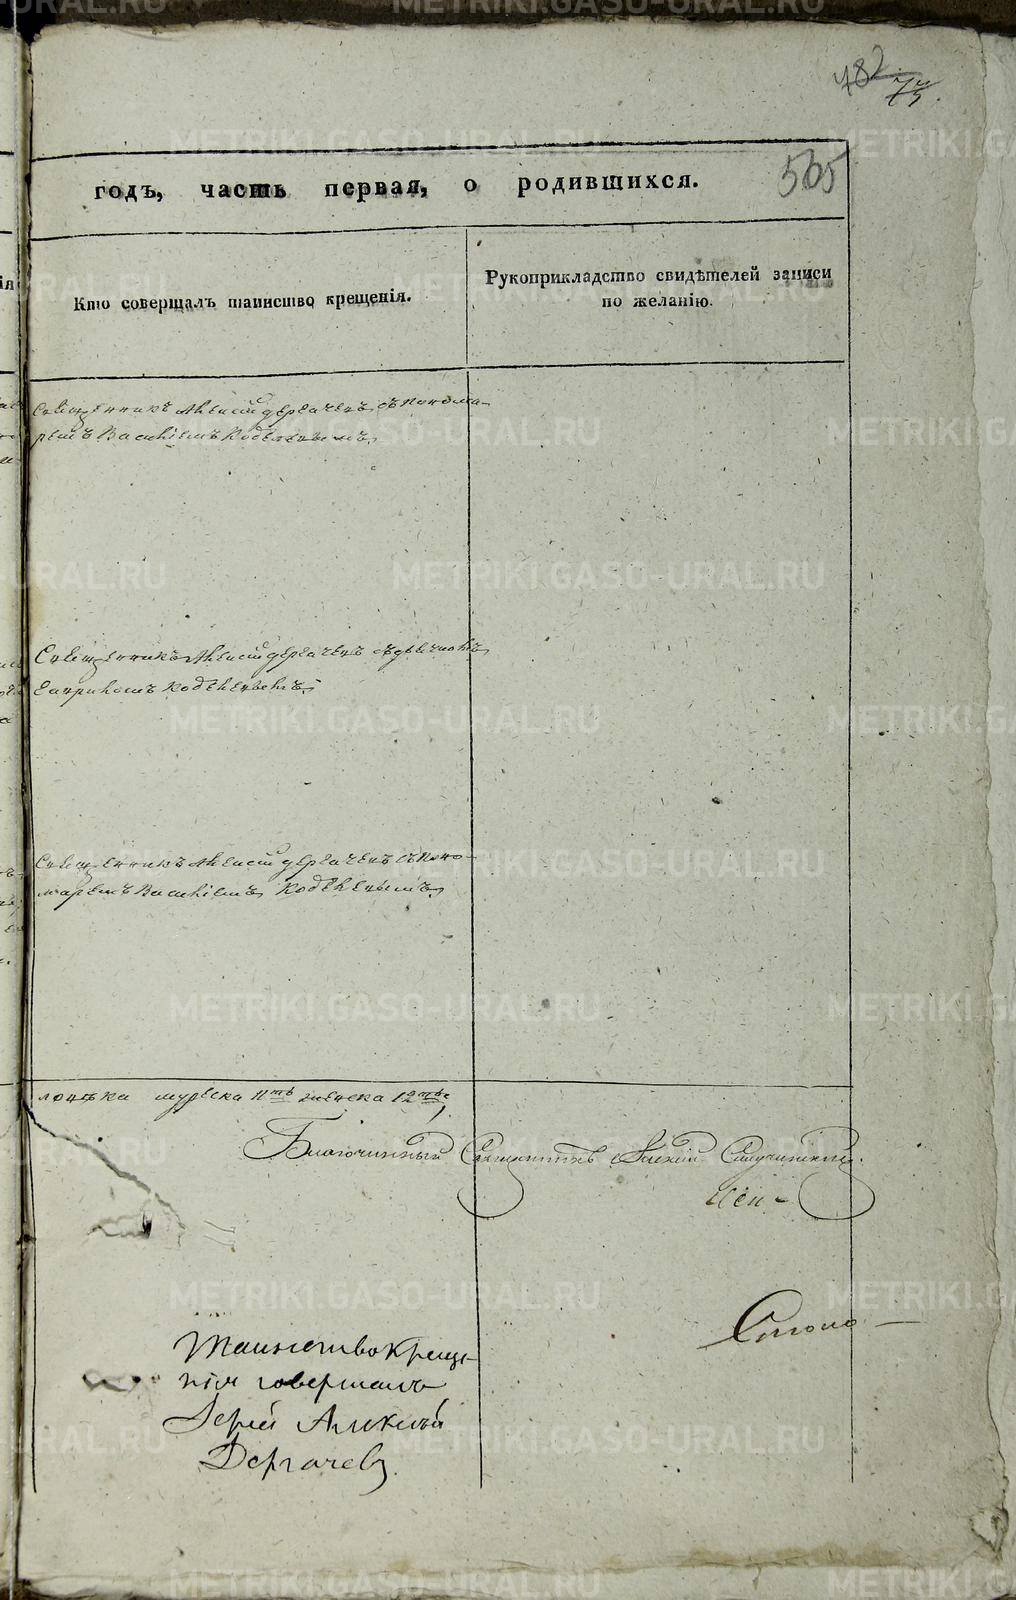 482
75.
565
годъ, часть первая, о родившихся.
Кто совершалъ таинство крещенія.
Рукоприкладство свидѣтелей записи
по желанію.
Священникъ Алексій Дергачевъ съ понома-
ремъ Василіемъ Кодѣлевымъ
Священникъ Алексій Дергачевъ съ дьячкомъ
Гавриломъ
Священникъ Алексій Дергачевъ съ поно-
маремъ Василіемъ
мужеска 11ть женска 12ть
Благочинный Священникъ Алексій
Таинство Креще-
нія совершалъ
Іерей Алексѣй
Дергачевъ
METRIKI.GASO-URAL.RU